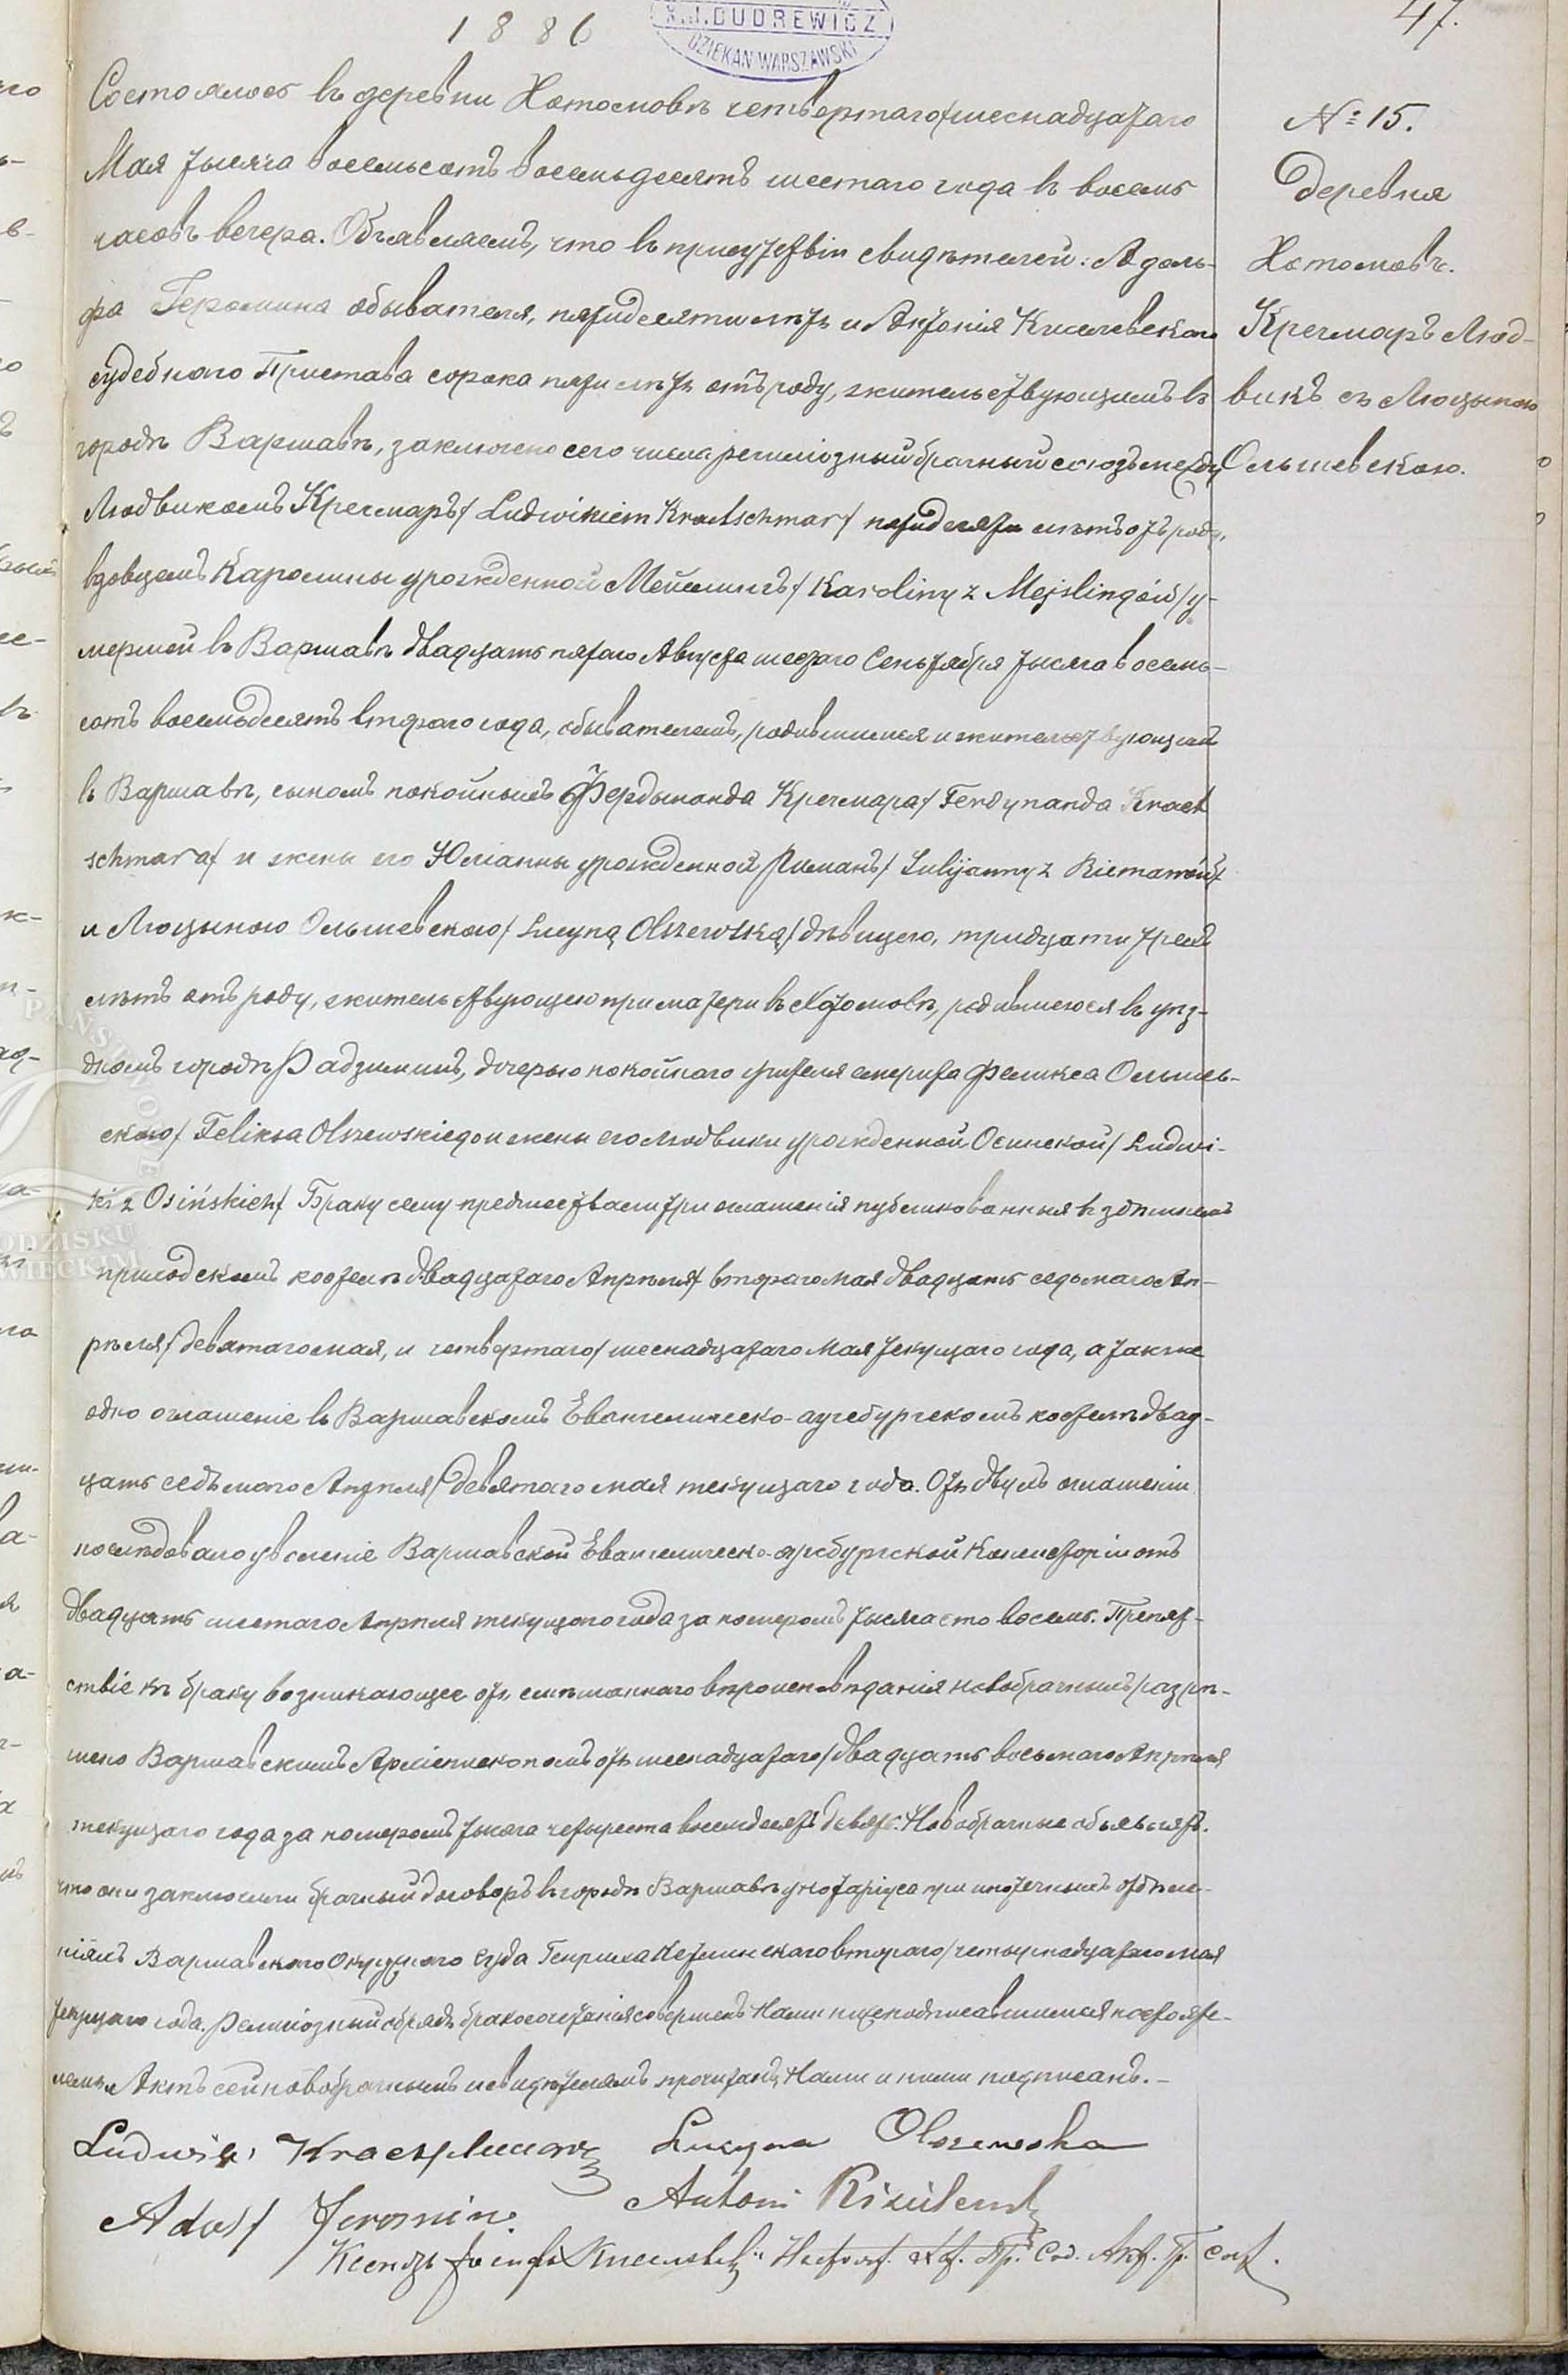 1886
X. J. DUDREWICZ
DZIEKAN WARSZAWSKI
47.
Состоялось въ деревни Хотомовѣ четвертаго/шеснадцатаго
Мая тысяча восемьсотъ восемьдесятъ шестаго года въ восемь
часовъ вечера. Объявляемъ, что въ присутствіи свидѣтелей: Адоль-
фа Геромина обывателя, пятидесяти лѣтъ и Антонія Киселевскаго
судебнаго Пристава сорока пяти лѣтъ отъ роду, жительствующимъ въ
городѣ Варшавѣ, заключено сего числа религіозный брачный союзъ между
Людвикомъ Кречмаръ/Ludwikiem Kraetschmar/ пятидесяти лѣтъ отъ роду,
вдовцемъ Каролины урожденной Мейслингъ/Karoliny z Mejslingów/ у-
мершей въ Варшавѣ двадцать пятаго Августа шестаго Сентября тысяча восемь-
сотъ восемьдесятъ втораго года, обывателемъ, родившимся и жительствующимъ
въ Варшавѣ, сыномъ покойныхъ Фердынанда Кречмара/Ferdynanda Kraet
schmara/ и жены его Юліанны урожденной Риманъ/Julijanny z Riemanów/
и Люцыною Ольшевскою/Lucyną Olszewską/ дѣвицею, тридцати трехъ
лѣтъ отъ роду, жительствующею при матери въ Хотомовѣ, родившеюся въ уѣз-
дномъ городѣ Радзиминѣ, дочерью покойнаго учителя емерита Феликса Ольшев-
скаго/Feliksa Olszewskiego и жены его Людвики урожденной Осинской/Ludwi-
ki z Osińskich/ Браку сему предшествовали три оглашенія публикованныя въ здѣшнемъ
приходскомъ костелѣ двадцатаго Апрѣля/втораго Мая двадцать седьмаго Ап-
рѣля/девятаго мая, и четвертаго/шеснадцатаго Мая текущаго года, а также
одно оглашеніе въ Варшавскомъ Евангелическо-аугсбургскомъ костелѣ двад-
цать седьмаго Апрѣля/девятаго мая текущаго года. Отъ двухъ оглашеній
послѣдовало уволеніе Варшавской Евангелическо-аугсбургской Консисторіи отъ
двадцать шестаго Апрѣля текущаго года за номеромъ тысяча сто восемь. Препят-
ствіе къ браку возникающее отъ смѣшаннаго вѣроисповѣданія новобрачныхъ, разрѣ-
шено Варшавскимъ Архіепископомъ отъ шеснадцатаго/двадцать восьмаго Апрѣля
текущаго года за номеромъ тысяча четыреста восемдесятъ девять. Новобрачные объявляютъ.
что они заключили брачный договоръ въ городѣ Варшавѣ у нотаріуса при ипотечныхъ отдѣле-
ніяхъ Варшавскаго Окружнаго Суда Генриха втораго/четырнадцатаго мая
текущаго года. Религіозный обрядъ бракосочетанія совершенъ Нами нижеподписавшимися настояте-
лемъ. Актъ сей новобрачнымъ и свидѣтелямъ прочитанъ, Нами и ними подписанъ.-
Ludwik Kraetschmar Lucyna Olszewska
Adolf Jeromin. Antoni
Ксендзъ
№ 15.
Деревня
Хотомовъ.
Кречмаръ Люд-
викъ съ Люцыною
Ольшевскою.